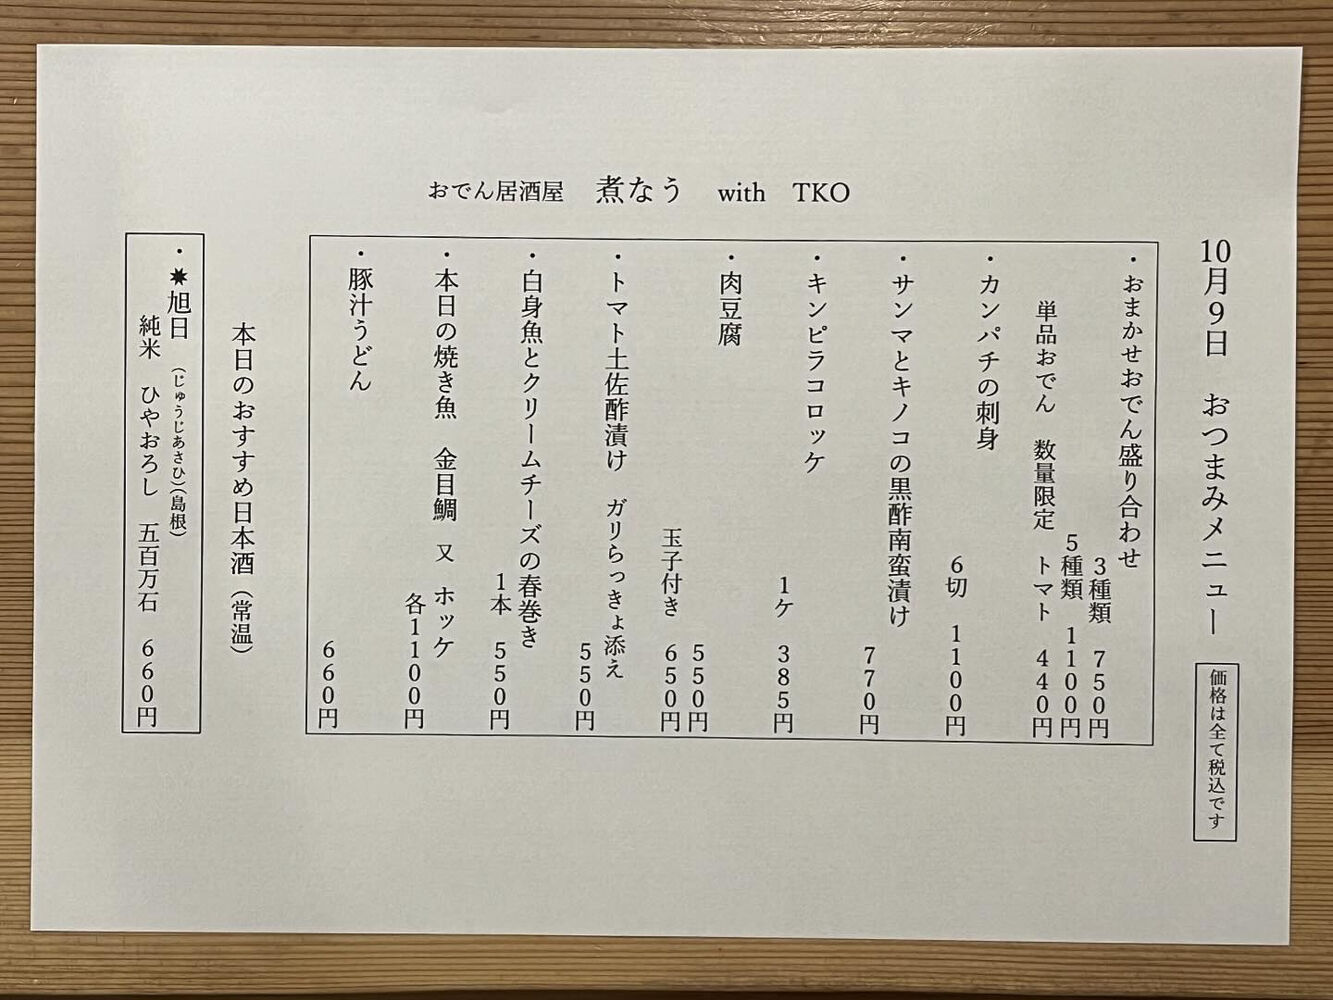 おでん居酒屋　煮なう　with　TKO
10月9日　おつまみメニュー
価格は全て税込です
・おまかせおでん盛り合わせ
3種類　750円
5種類　1100円
単品おでん　数量限定　トマト　440円
・カンパチの刺身
6切　1100円
・サンマとキノコの黒酢南蛮漬け
770円
・キンピラコロッケ
1ケ　385円
・肉豆腐
550円
玉子付き　650円
・トマト土佐酢漬け　ガリらっきょ添え
550円
・白身魚とクリームチーズの春巻き
1本　550円
・本日の焼き魚　金目鯛　又　ホッケ
各1100円
・豚汁うどん
660円
本日のおすすめ日本酒（常温）
・✷旭日（じゅうじあさひ）（島根）
純米　ひやおろし　五百万石　660円